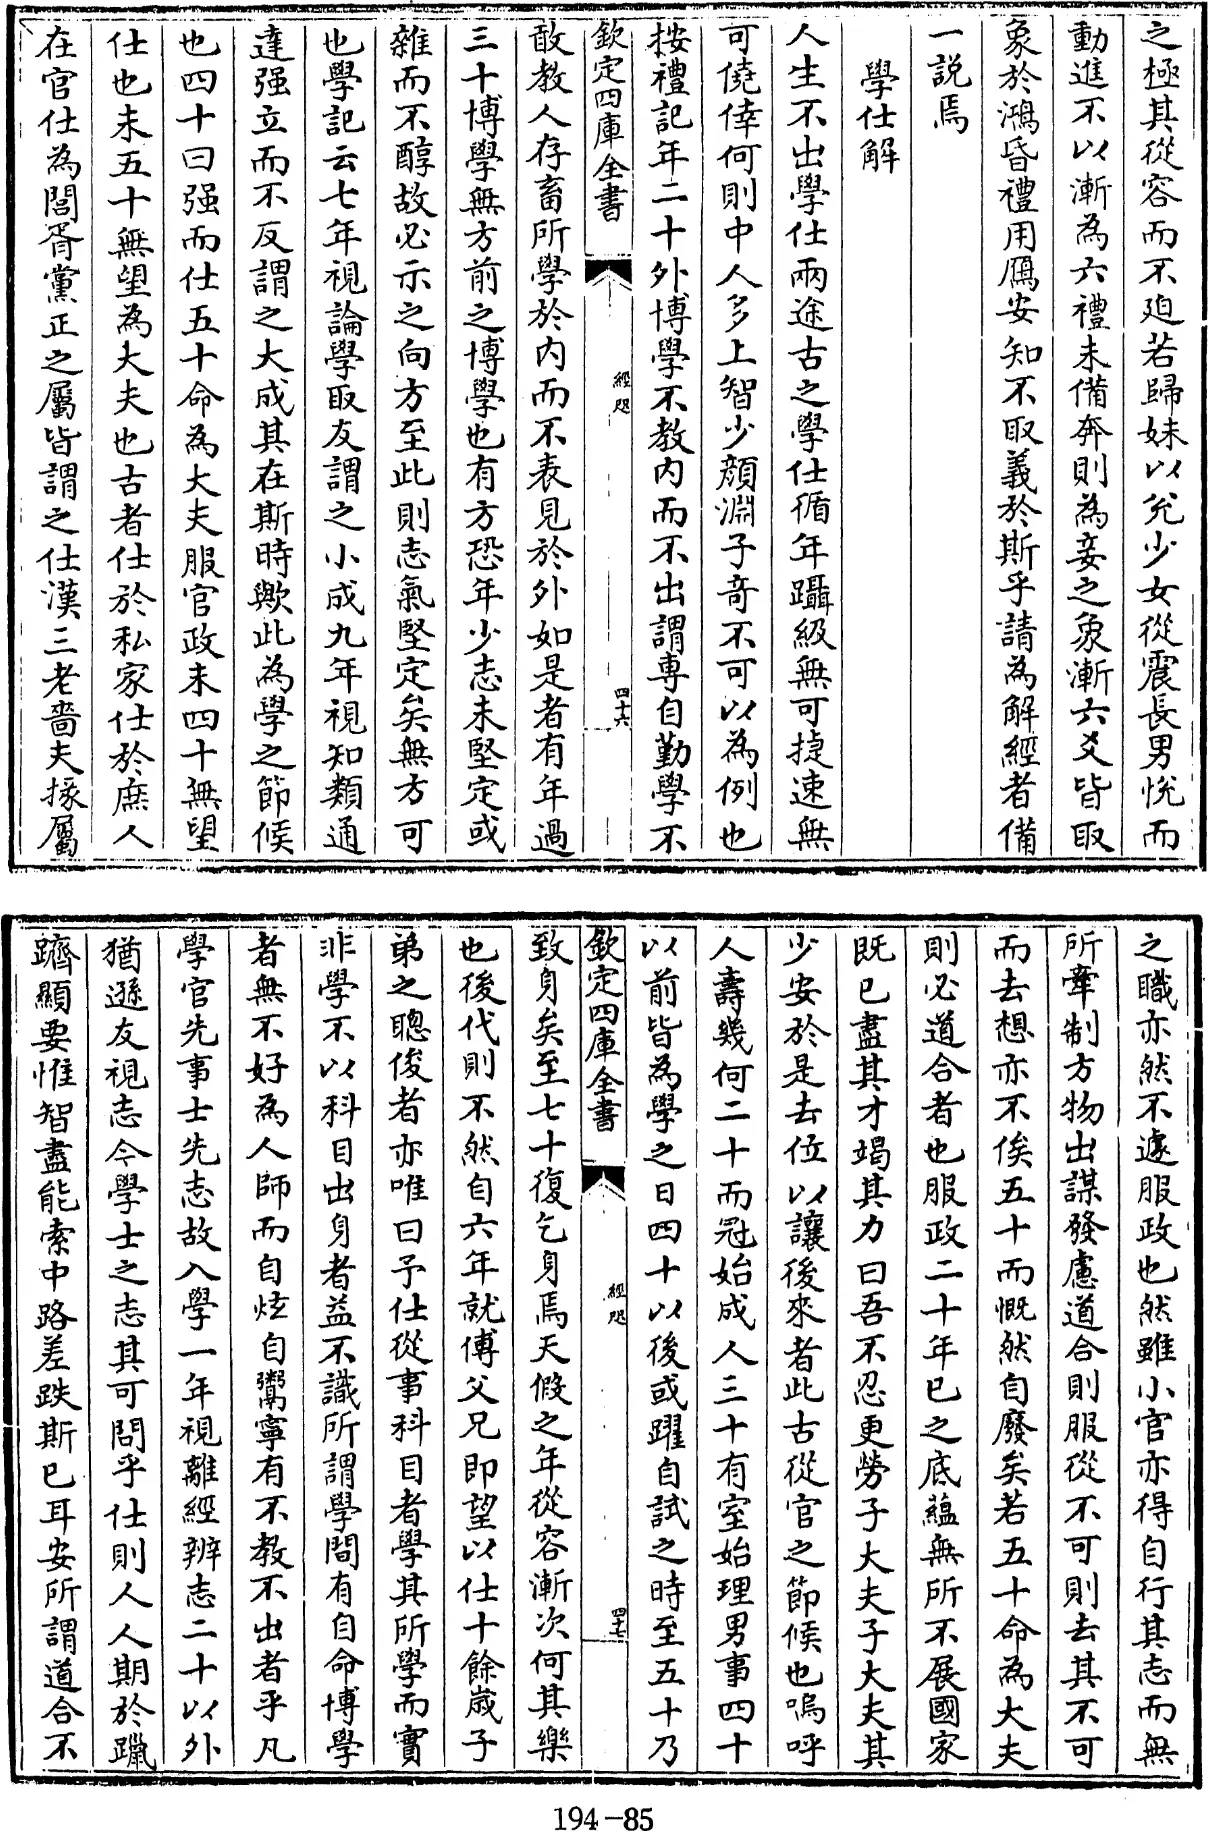 之極其從容而不迫若歸妹以兊少女從震長男悦而
動進不以漸為六禮未備奔則為妾之象漸六爻皆取
象於鴻昏禮用鴈安知不取義於斯乎請為解經者備
一說焉
學仕解
人生不出學仕兩途古之學仕循年躡級無可捷速無
可僥倖何則中人多上智少顔淵子奇不可以為例也
按禮記年二十外博學不教内而不出謂專自勤學不
欽定四庫全書
經咫
四十六
敢教人存畜所學於内而不表見於外如是者有年過
三十博學無方前之博學也有方恐年少志未堅定或
雜而不醇故必示之向方至此則志氣堅定矣無方可
也學記云七年視論學取友謂之小成九年視知類通
達强立而不反謂之大成其在斯時歟此為學之節候
也四十曰强而仕五十命為大夫服官政未四十無望
仕也未五十無望為大夫也古者仕於私家仕於庶人
在官仕為閭胥黨正之屬皆謂之仕漢三老嗇夫掾屬
之職亦然不遽服政也然雖小官亦得自行其志而無
所牽制方物出謀發慮道合則服從不可則去其不可
而去想亦不俟五十而慨然自廢矣若五十命為大夫
則必道合者也服政二十年已之底蘊無所不展國家
既已盡其才竭其力曰吾不忍更勞子大夫子大夫其
少安於是去位以讓後來者此古從官之節候也嗚呼
人壽幾何二十而冠始成人三十有室始理男事四十
以前皆為學之日四十以後或躍自試之時至五十乃
欽定四庫全書
經咫
四十七
致身矣至七十復乞身焉天假之年從容漸次何其樂
也後代則不然自六年就傅父兄即望以仕十餘歲子
弟之聰俊者亦唯曰予仕從事科目者學其所學而實
非學不以科目出身者益不識所謂學間有自命博學
者無不好為人師而自炫自鬻寧有不教不出者乎凡
學官先事士先志故入學一年視離經辨志二十以外
猶遜友視志今學士之志其可問乎仕則人人期於躐
躋顯要惟智盡能索中路差跌斯已耳安所謂道合不
194-85